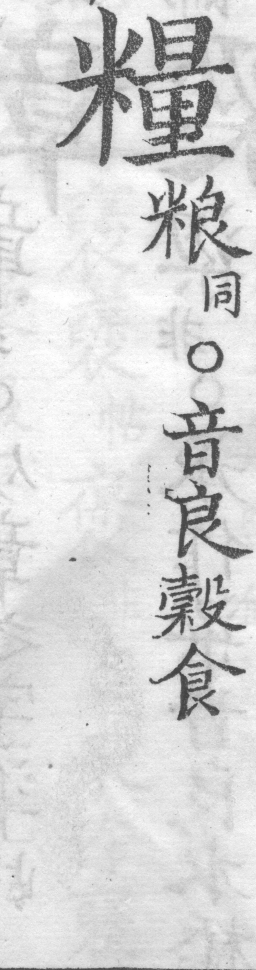 糧
粮同○音良穀食